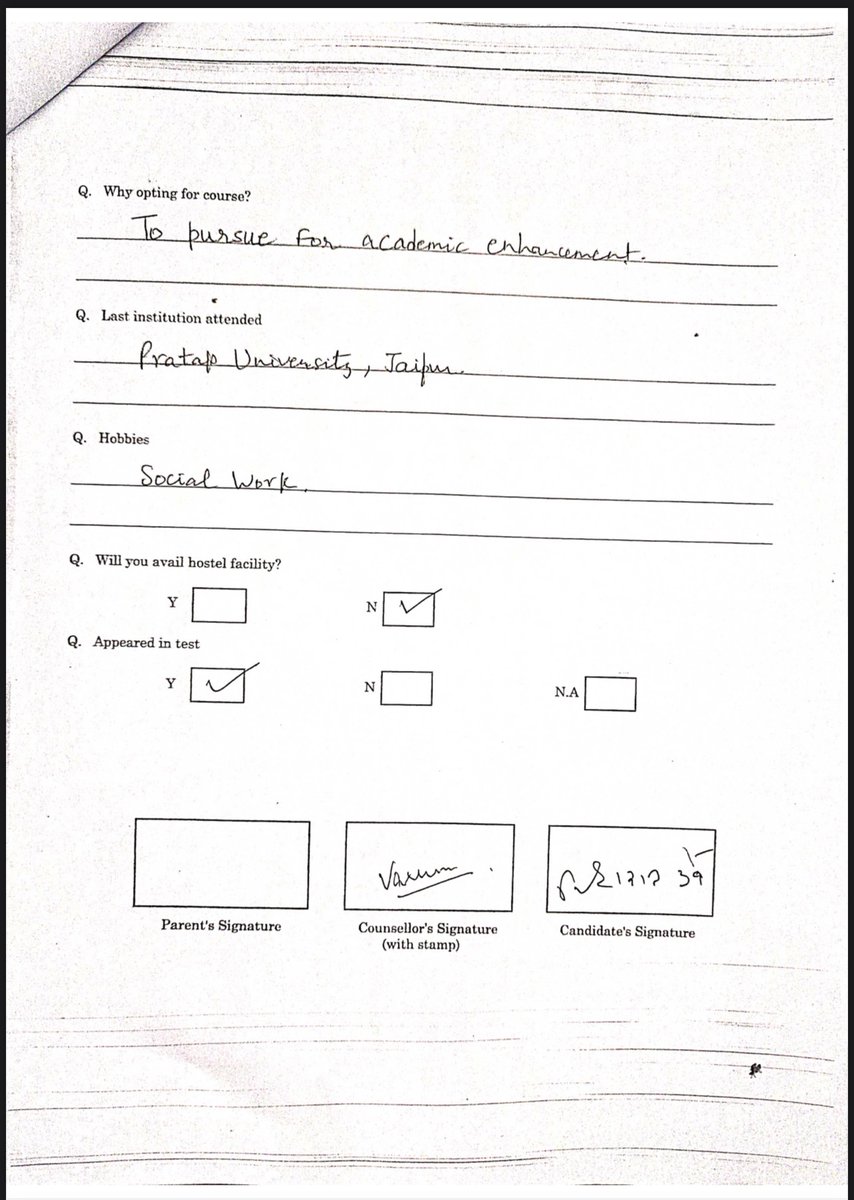 Q. Why opting for course?
To pursue for academic enhancement.
Q. Last institution attended
Pratap University, Jaipur.
Q. Hobbies
Social Work.
Q. Will you avail hostel facility?
Y N
Q. Appeared in test
Y N N.A
Varun
Parent's Signature Counsellor's Signature Candidate's Signature
(with stamp)